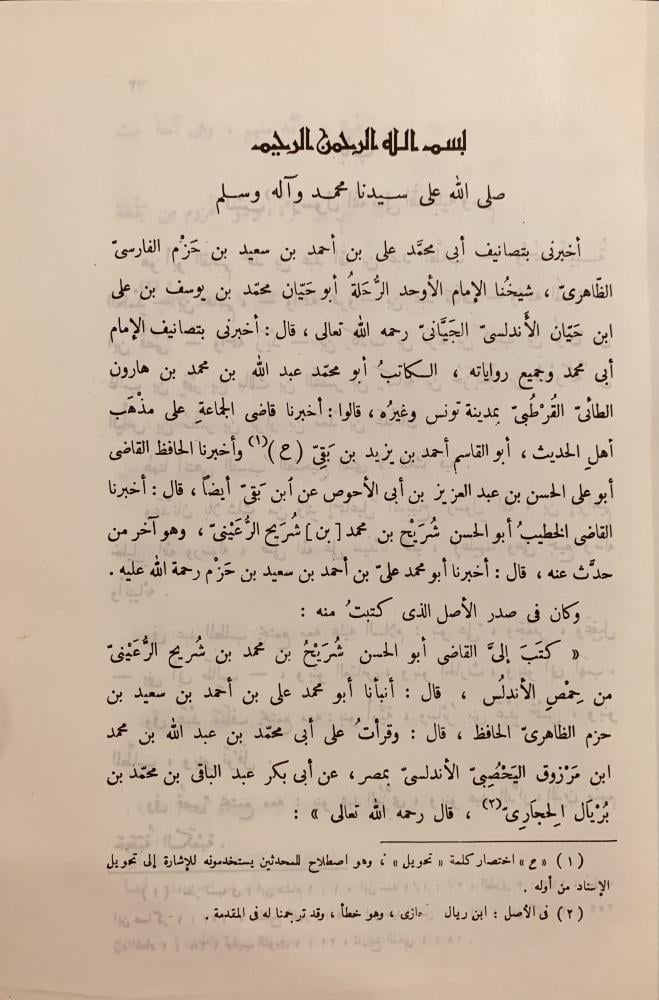 بسم الله الرحمن الرحيم
صلى الله على سيدنا محمد وآله وسلم
أخبرنى بتصانيف أبى محمَّد على بن أحمد بن سعيد بن حَزْم الفارسىّ
الظّاهرىّ ، شيخُنا الإمام الأوحد الرُّحَلةُ أبو حَيّان محمّد بن يوسف بن على
ابن حَيّان الأَندلسىّ الجَيَّانىّ رحمه الله تعالى ، قال : أخبرنى بتصانيف الإمام
أبى محمد وجميع رواياته ، الكاتبُ أبو محمّد عبد الله بن محمد بن هارون
الطائىّ القُرْطُبىّ بمدينة تونس وغيرُه ، قالوا : أخبرنا قاضى الجماعةِ على مذْهَب
أهلِ الحديث ، أبو القاسم أحمد بن يزيد بن بَقِىّ ( ح )(١) وأخبرنا الحافظ القاضى
أبو على الحسن بن عبد العزيز بن أبى الأحوص عن ٱبن بَقىّ أيضاً ، قال : أخبرنا
القاضى الخطيبُ أبو الحسن شُرَيْح بن محمد [ بن ] شُرَيح الرُّعَيْنىّ ، وهو آخر من
حدَّث عنه ، قال : أخبرنا أبو محمد علىّ بن أحمد بن سعيد بن حَزْم رحمة الله عليه .
وكان فى صدر الأصل الذى كتبتُ منه :
« كتَبَ إلىَّ القاضى أبو الحسن شُرَيْحُ بن محمد بن شُريح الرُّعَيْنىّ
من حِمْصِ الأندلُس ، قال : أنبأنا أبو محمد على بن أحمد بن سعيد بن
حزم الظاهرىّ الحافظ ، قال : وقرأتُ على أبى محمّد بن عبد الله بن محمد
ابن مَرْزوق اليَحْصُبِىّ الأندلسىّ بمصر ، عن أبى بكر عبد الباقى بن محمّد بن
بُرْيَال الِحجَارِىّ(٢) ، قال رحمه الله تعالى » :
( ١ ) « ح » اختصار كلمة « تحويل » ، وهو اصطلاح للمحدثين يستخدمونه للإشارة إلى تحويل
الإسناد من أوله .
( ٢ ) فى الأصل : ابن ريال ، وهو خطأ ، وقد ترجمنا له فى المقدمة .